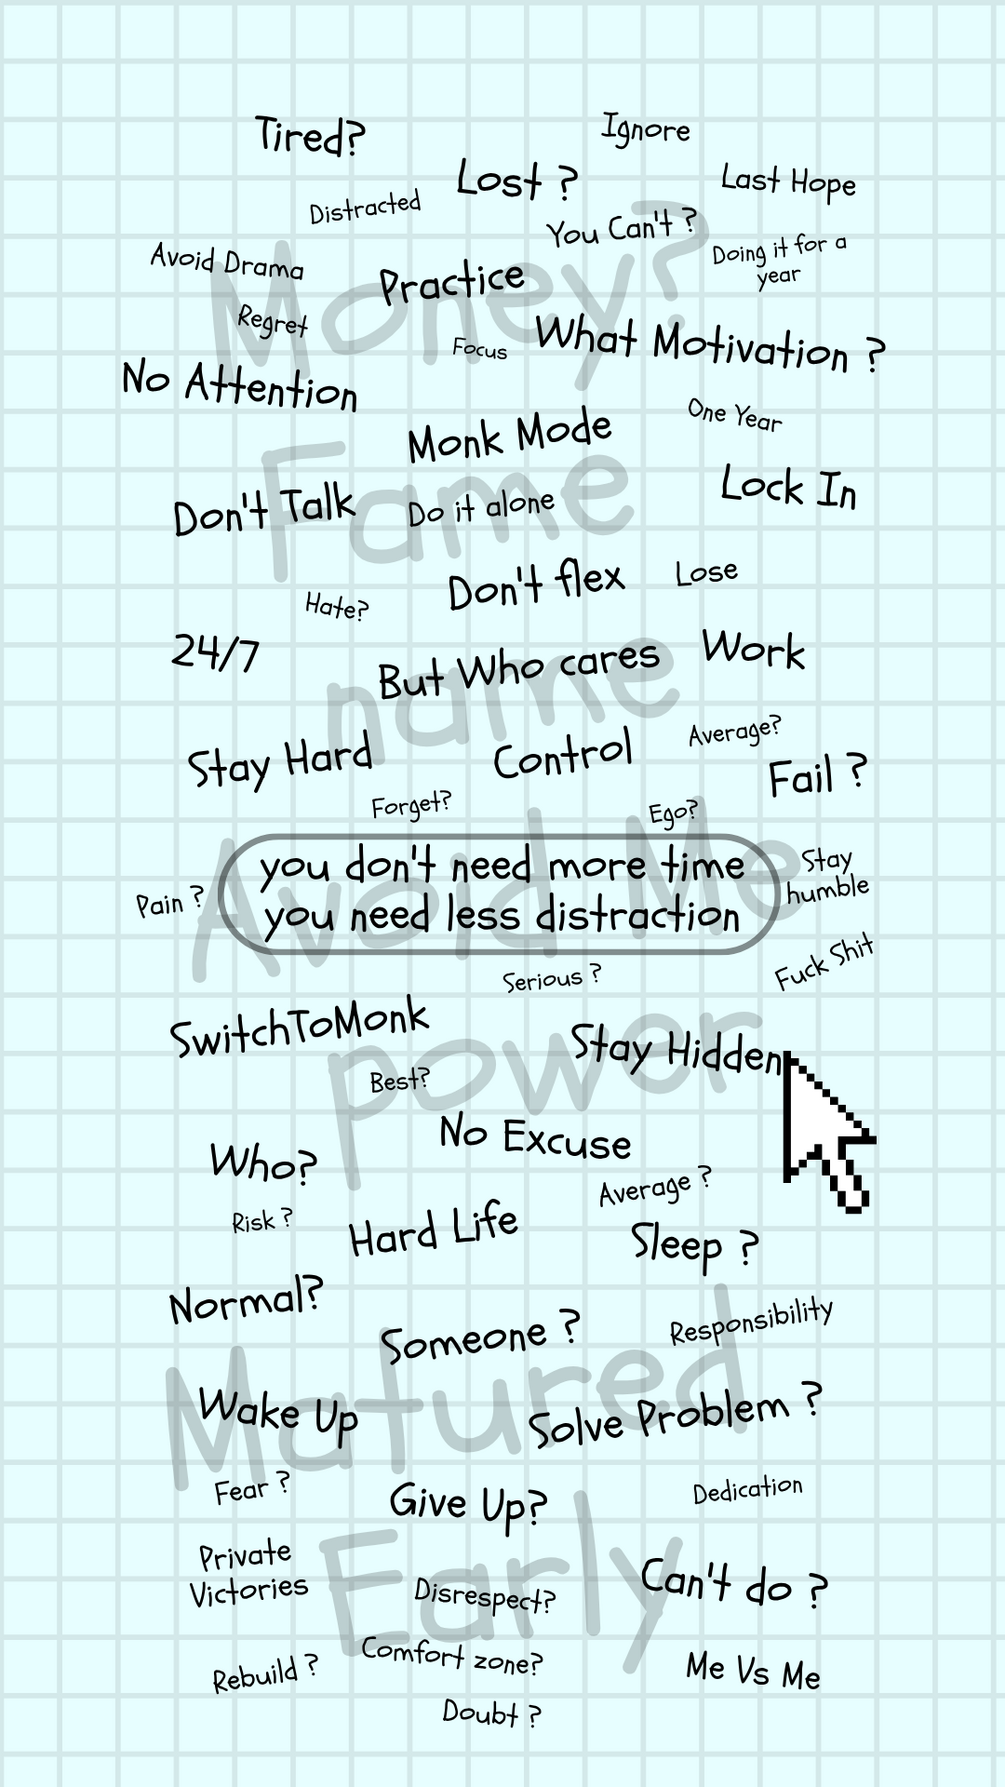 Tired?
Ignore
Lost ?
Last Hope
Distracted
You Can't ?
Avoid Drama
Practice
Doing it for a
year
Money?
Regret
Focus
What Motivation ?
No Attention
One Year
Monk Mode
Fame
Lock In
Don't Talk
Do it alone
Don't flex
Lose
Hate?
24/7
But Who cares
Work
name
Stay Hard
Control
Average?
Fail ?
Forget?
Ego?
Avoid Me
you don't need more time
you need less distraction
Stay
humble
Pain ?
Fuck Shit
Serious ?
SwitchToMonk
Stay Hidden
power
Best?
No Excuse
Who?
Average ?
Risk ?
Hard Life
Sleep ?
Normal?
Someone ?
Responsibility
Matured
Wake Up
Solve Problem ?
Fear ?
Give Up?
Dedication
Early
Private
Victories
Disrespect?
Can't do ?
Rebuild ?
Comfort zone?
Me Vs Me
Doubt ?